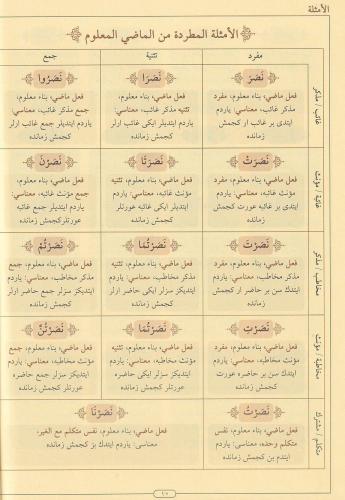 الأمثلة
الأمثلة المطردة من الماضي المعلوم
مفرد
تثنية
جمع
غائب / مذكر
نَصَرَ
فعل ماضي، بناء معلوم، مفرد
مذكر غائب، معناسي: ياردم
ايتدی بر غائب او كجمش
زمانده
نَصَرَا
فعل ماضي، بناء معلوم،
تثنيه مذكر غائب، معناسي:
ياردم ايتديلر ايكی غائب ارلر
كجمش زمانده
نَصَرُوا
فعل ماضي، بناء معلوم،
جمع مذكر غائب، معناسي:
ياردم ايتديلر جمع غائب ارلر
كجمش زمانده
غائبة / مؤنث
نَصَرَتْ
فعل ماضي، بناء معلوم، مفرد
مؤنث غائبه، معناسي: ياردم
ايتدی بر غائبه عورت كجمش
زمانده
نَصَرَتَا
فعل ماضي، بناء معلوم، تثنيه
مؤنث غائبه، معناسي: ياردم
ايتديلر ايكی غائبه عورتلر
كجمش زمانده
نَصَرْنَ
فعل ماضي، بناء معلوم،
جمع مؤنث غائبه، معناسي:
ياردم ايتديلر جمع غائبه
عورتلر كجمش زمانده
مخاطب / مذكر
نَصَرْتَ
فعل ماضي، بناء معلوم، مفرد
مذكر مخاطب، معناسي: ياردم
ايتدك سن بر حاضر ار كجمش
زمانده
نَصَرْتُمَا
فعل ماضي، بناء معلوم، تثنيه
مذكر مخاطب، معناسي: ياردم
ايتديكز سزلر ايكی حاضر ارلر
كجمش زمانده
نَصَرْتُمْ
فعل ماضي، بناء معلوم، جمع
مذكر مخاطب، معناسي: ياردم
ايتديكز سزلر جمع حاضر ارلر
كجمش زمانده
مخاطبة / مؤنث
نَصَرْتِ
فعل ماضي، بناء معلوم، مفرد
مؤنث مخاطبه، معناسي: ياردم
ايتدك سن بر حاضره عورت
كجمش زمانده
نَصَرْتُمَا
فعل ماضي، بناء معلوم، تثنيه
مؤنث مخاطبه، معناسي: ياردم
ايتديكز سزلر ايكی حاضره
عورتلر كجمش زمانده
نَصَرْتُنَّ
فعل ماضي، بناء معلوم، جمع
مؤنث مخاطبه، معناسي: ياردم
ايتديكز سزلر جمع حاضره
عورتلر كجمش زمانده
متكلم / مشترك
نَصَرْتُ
فعل ماضي، بناء معلوم، نفس
متكلم وحده، معناسي: ياردم
ايتدم بن كجمش زمانده
نَصَرْنَا
فعل ماضي، بناء معلوم، نفس متكلم مع الغير،
معناسي: ياردم ايتدك بز كجمش زمانده